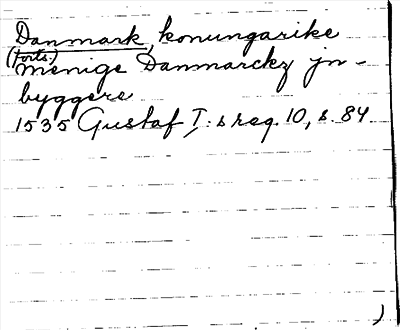 Danmark, konungarike
(forts.)
menige Danmarckz jn-
byggere
1535 Gustaf I:s reg. 10, s. 84
)